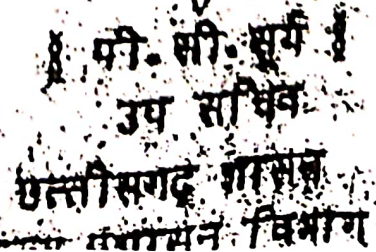 ॥ पी. सी. सूर्य ॥
उप सचिव
छत्तीसगढ़ शासन
प्रशासन विभाग